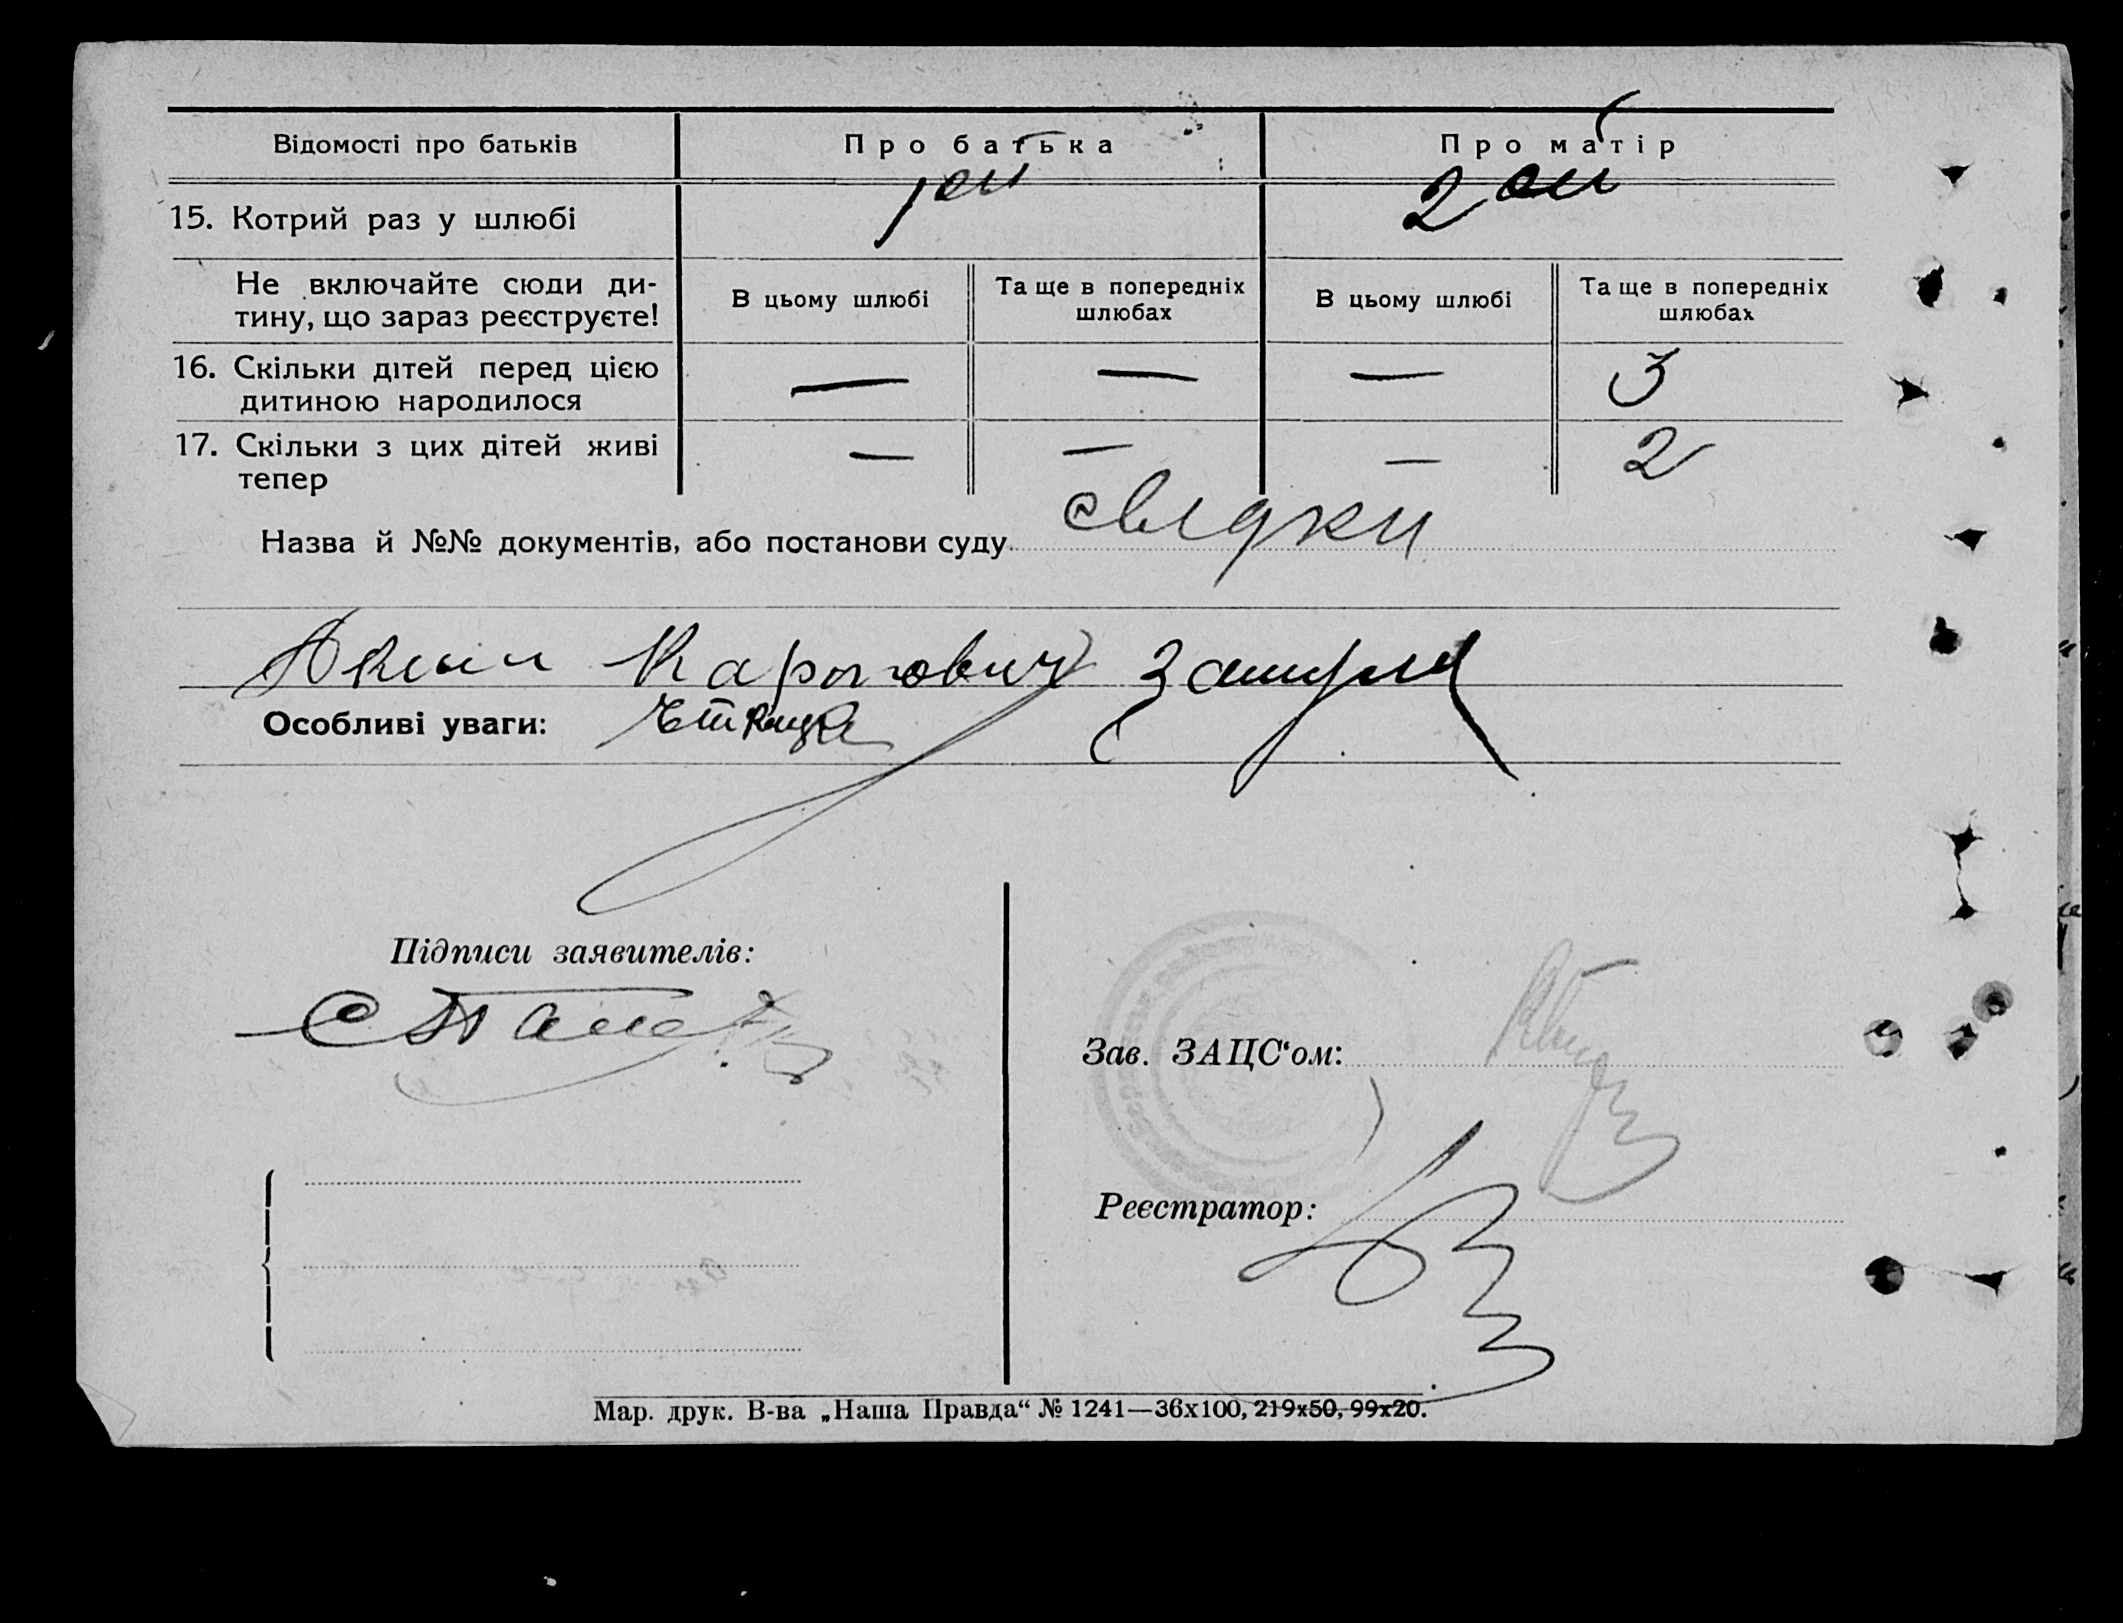 Відомості про батьків Про батька Про матір
15. Котрий раз у шлюбі 1 ой 2 ой
Не включайте сюди ди-
тину, що зараз реєструєте!
В цьому шлюбі Та ще в попередніх шлюбах В цьому шлюбі Та ще в попередніх шлюбах
16. Скільки дітей перед цією — — — 3
дитиною народилося
17. Скільки з цих дітей живі — — — 2
тепер
Назва й №№ документів, або постанови суду свідки
Особливі уваги:
Підписи заявителів:
Зав. ЗАЦС‘ом:
Реєстратор:
Мар. друк. В-ва „Наша Правда“ № 1241—36х100, 219х50, 99х20.